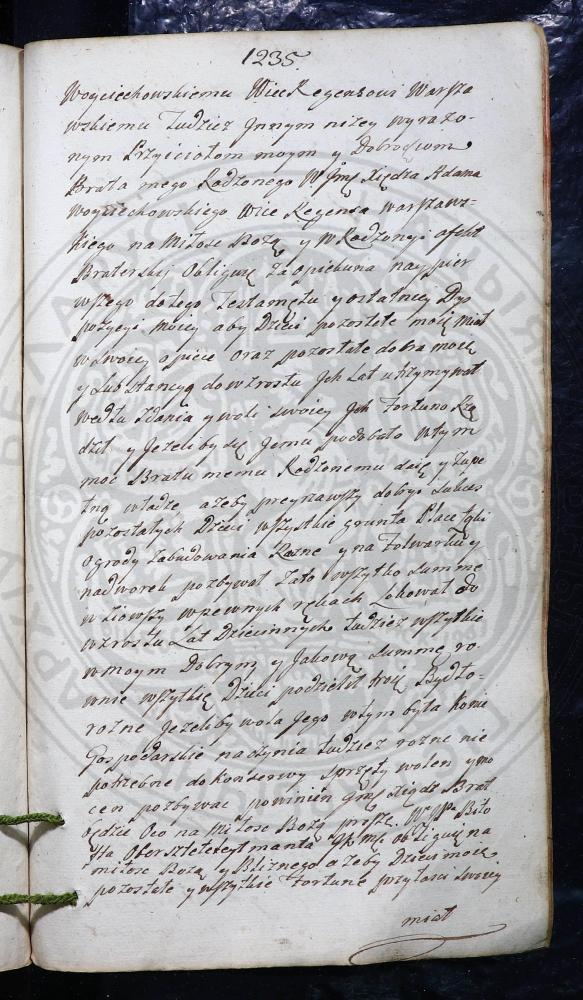 1235
Woyciechowskiemu WiceRegensowi Warsza
wskiemu Tudziez Innym nizey wyrazo-
nym Przyiciołom moym y Dobrodziom
Brata mego Rodzonego W Jmę Xiędza Adama
Woyciechowskiego Wice Regensa Warszaws-
kiego na Miłosc Bozą y w Rodzonyi afekt
Braterski Obliguię za opiekuna nay pier
wszego do tego Testamętu y ostatniey Dys
pozycyi moiey aby Dzieci pozostałe moie miał
w swoiey opiece oraz pozostałe dobra moie
y Lub stancyą do wzrostu Jch Lat utrzymywał
wedłu zdania y woli swoiey Jch Fortuno Rzą
dził y Jezeliby się Jemu podobało w tym
moc Bratu memu Rodzonemu daię y zupe
łną władzę, azeby preynawszy dobrze
pozostałych Dzieci wszystkie grunta Place Łąki
ogrody Zabudowania Rozne y na Folwarku y
nadworek pozbywał Zato wszytko summę
wziowszy w pewnych rękach Lokował do
wzrostu Lat Dziecinnych tudziez wszytkie
w moym Dobrym y Jakową summę ro-
wnie wszytkie Dzieci podzielił troię Bydło-
rozne Jezeliby wola Jego w tym była konie
Gospodarskie naczynia tudziez rozne nie
potrzebne do konserwy sprzęty wolen y mo
cen pozbywac powinien Jmę Xiądz Brat
będzie Oco na Miłosc Bozą proszę W JPa Biło
Ha Oferszteleytmanta Jk Mę obliguię na
miłosc Bozą y Blizniego azeby Dzieci moie
pozostałe y wszytkie Fortune przytosci swoiey
miał